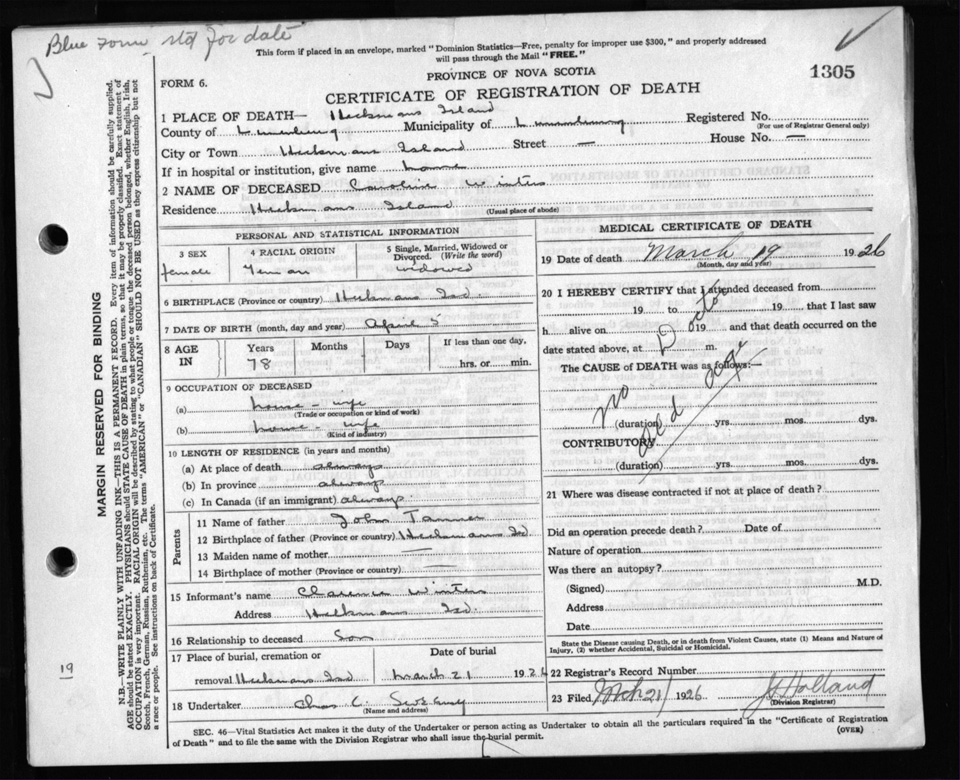 Blue Form std for date
This form if placed in an envelope, marked "Dominion Statistics—Free, penalty for improper use $300," and properly addressed
will pass through the Mail "FREE."
PROVINCE OF NOVA SCOTIA
1305
FORM 6.
CERTIFICATE OF REGISTRATION OF DEATH
1 PLACE OF DEATH— Heckmans Island
Registered No.
(For use of Registrar General only)
County of Lunenburg Municipality of Lunenburg House No. —
City or Town Heckmans Island Street —
If in hospital or institution, give name home
2 NAME OF DECEASED Caroline Winters
Residence Heckmans Island
(Usual place of abode)
PERSONAL AND STATISTICAL INFORMATION
3 SEX
female
4 RACIAL ORIGIN
German
5 Single, Married, Widowed or
Divorced. (Write the word)
widowed
6 BIRTHPLACE (Province or country) Heckmans Isd.
7 DATE OF BIRTH (month, day and year) April 5
8 AGE IN
Years Months Days If less than one day,
78 hrs. or min.
9 OCCUPATION OF DECEASED
(a) house-wife
(Trade or occupation or kind of work)
(b) house-wife
(Kind of industry)
10 LENGTH OF RESIDENCE (in years and months)
(a) At place of death always
(b) In province always
(c) In Canada (if an immigrant) always
Parents
11 Name of father John Tanner
12 Birthplace of father (Province or country) Heckmans Isd.
13 Maiden name of mother —
14 Birthplace of mother (Province or country) —
15 Informant's name Clarence Winters
Address Heckmans Isd.
16 Relationship to deceased Son
17 Place of burial, cremation or Date of burial
removal Heckmans Isd March 21 1926
18 Undertaker Chas C.
(Name and address)
MEDICAL CERTIFICATE OF DEATH
19 Date of death March 19 1926
(Month, day and year)
20 I HEREBY CERTIFY that I attended deceased from
19 to 19 that I last saw
h alive on 19 and that death occurred on
the date stated above, at m.
The CAUSE of DEATH was as follows:—
no Doctor
old age
(duration) yrs. mos. dys.
CONTRIBUTORY
(duration) yrs. mos. dys.
21 Where was disease contracted if not at place of death?
Did an operation precede death? Date of
Nature of operation
Was there an autopsy?
(Signed) M.D.
Address
Date
State the Disease causing Death, or in death from Violent Causes, state (1) Means and Nature of
Injury, (2) whether Accidental, Suicidal or Homicidal.
22 Registrar's Record Number
23 Filed Mch 21 1926 Holland
(Division Registrar)
SEC. 46—Vital Statistics Act makes it the duty of the Undertaker or person acting as Undertaker to obtain all the particulars required in the "Certificate of Registration
of Death" and to file the same with the Division Registrar who shall issue the burial permit.
(OVER)
MARGIN RESERVED FOR BINDING
N.B.—WRITE PLAINLY WITH UNFADING INK—THIS IS A PERMANENT RECORD. Every item of information should be carefully supplied.
AGE should be stated EXACTLY. PHYSICIANS should STATE CAUSE OF DEATH in plain terms, so that it may be properly classified. Exact statement of
OCCUPATION is very important. RACIAL ORIGIN will be described by stating to what people or tongue the deceased person belonged, whether English, Irish,
Scotch, French, German, Russian, Ruthenian, etc. The terms "AMERICAN" or "CANADIAN" SHOULD NOT BE USED as they express citizenship but not
a race or people. See instructions on back of Certificate.
19